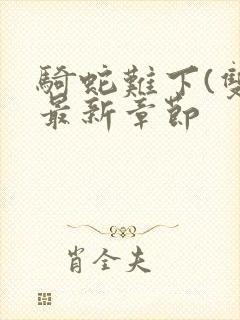 騎蛇難下(雙
最新章節
肖全夫